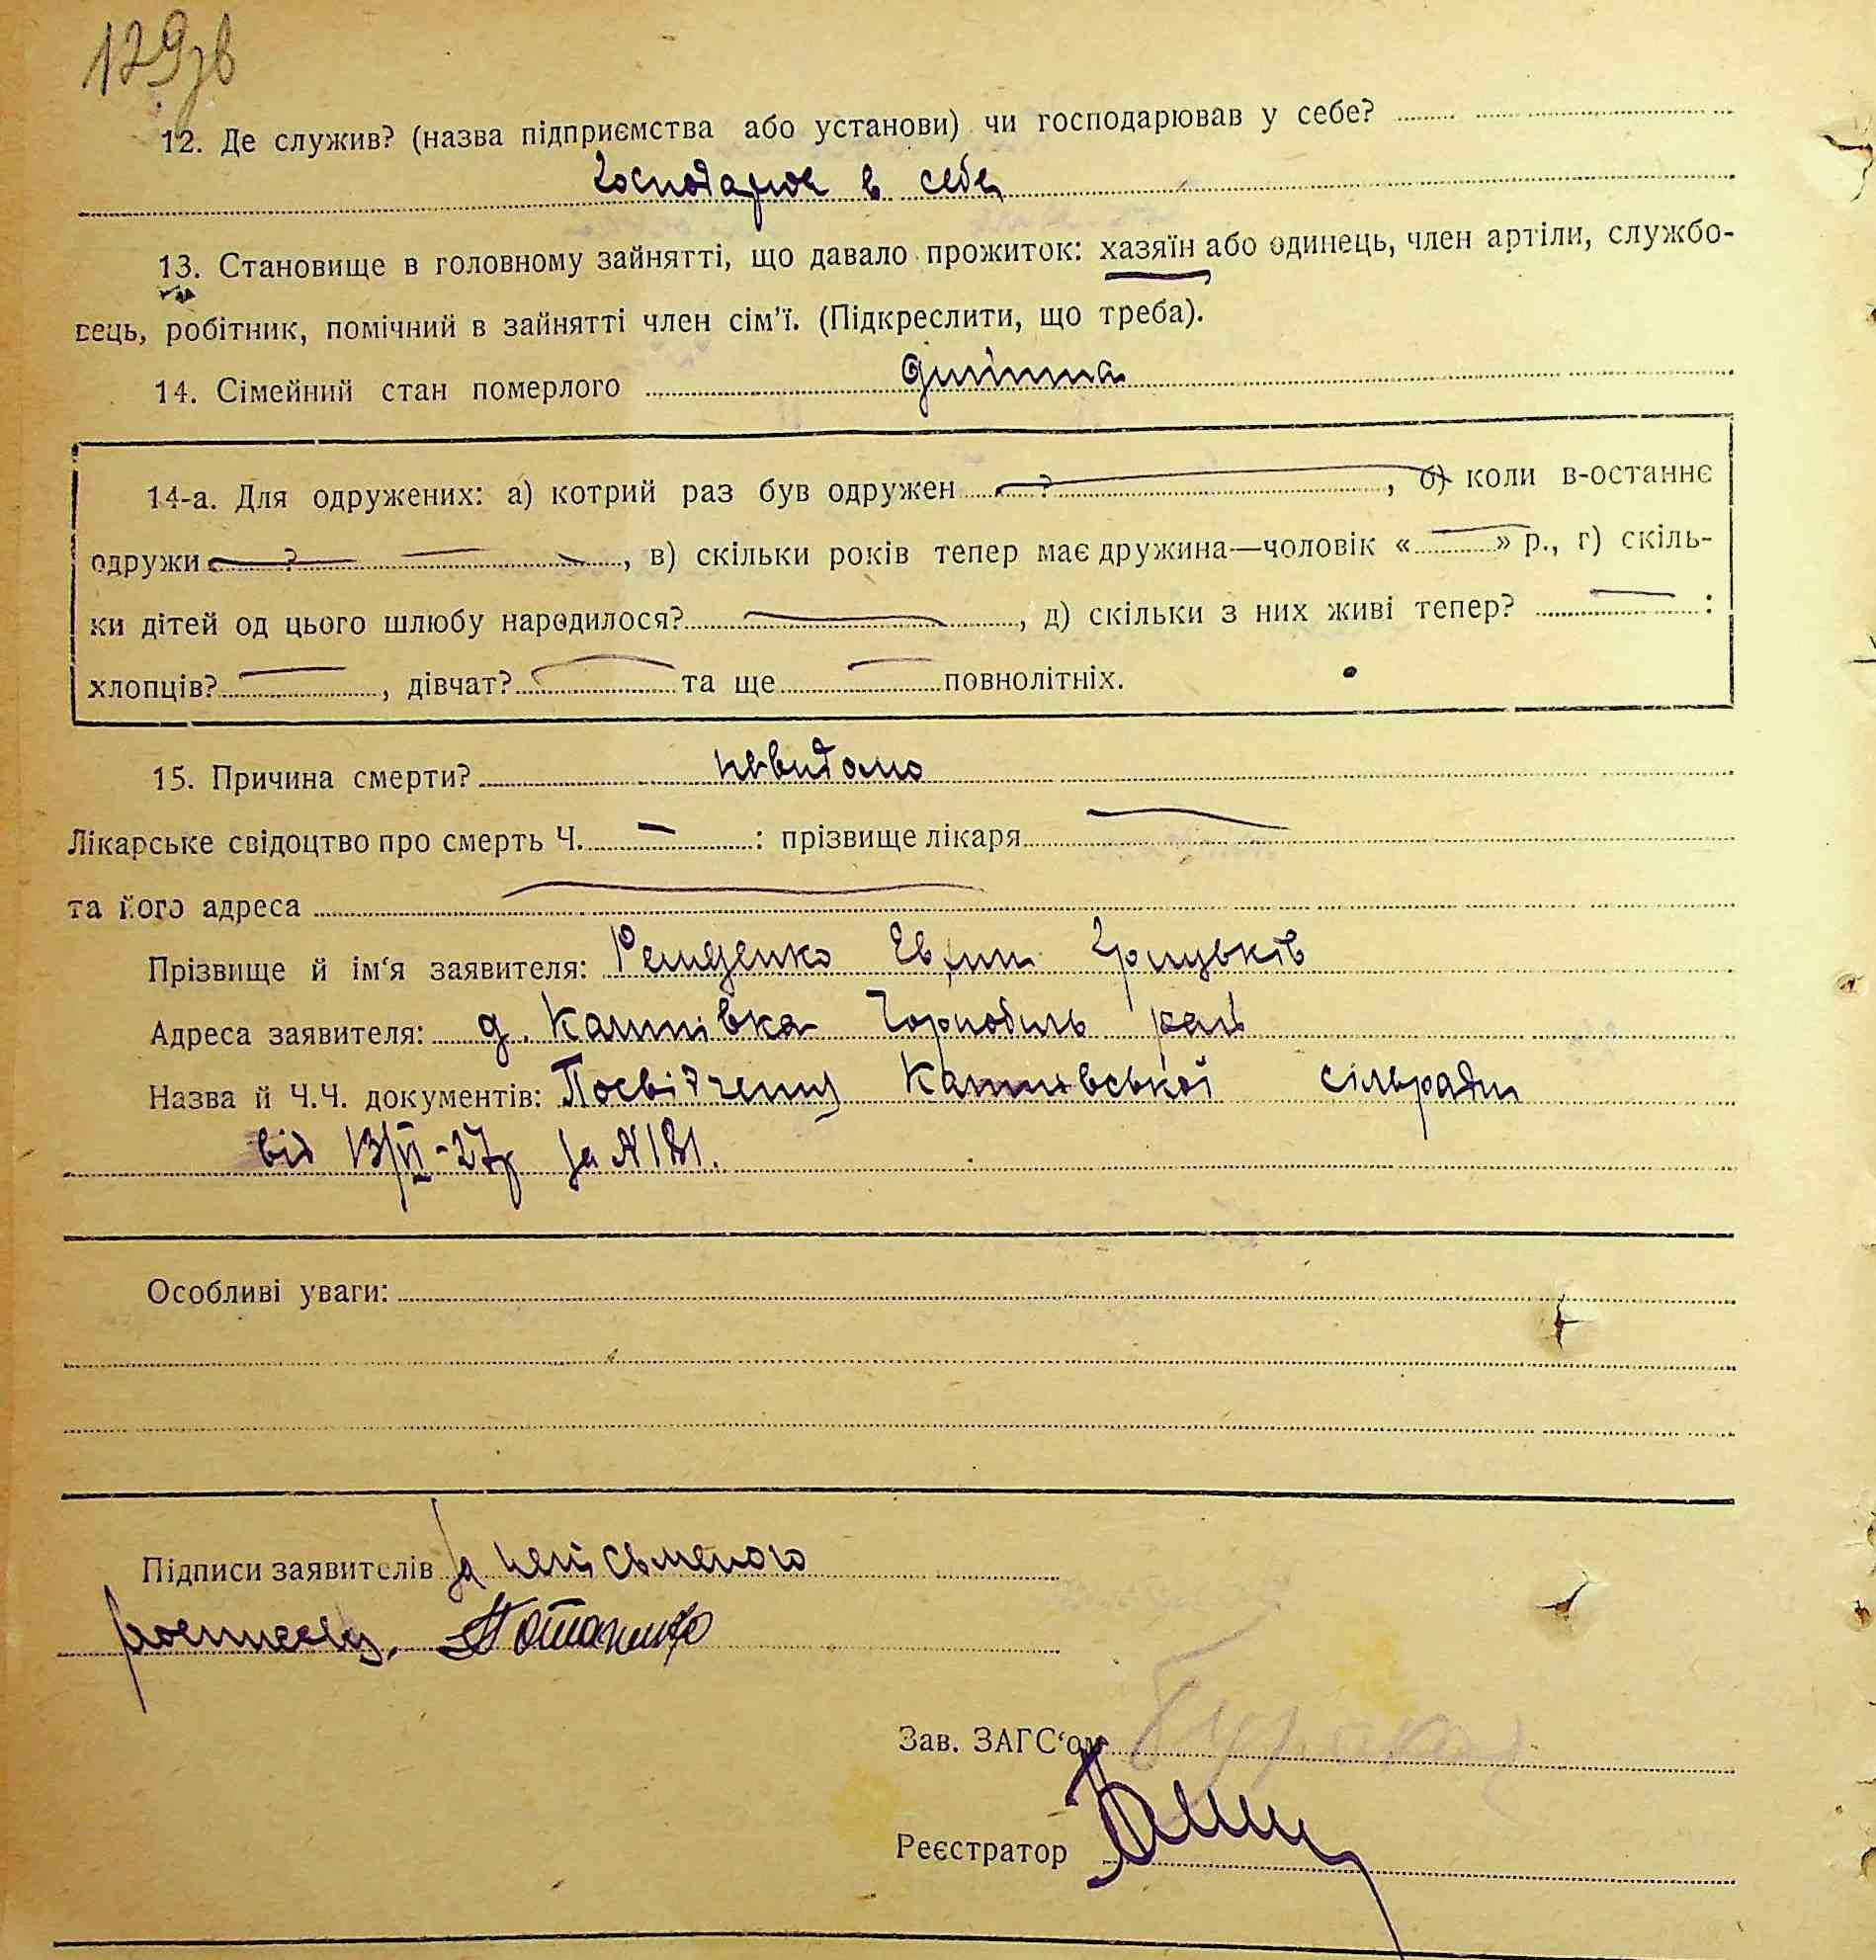 129зв
12. Де служив? (назва підприємства або установи) чи господарював у себе?
Господарюв в себе
13. Становище в головному зайнятті, що давало прожиток: хазяїн або одинець, член артіли, службо-
вець, робітник, помічний в зайнятті член сім'ї. (Підкреслити, що треба).
14. Сімейний стан померлого
14-а. Для одружених: а) котрий раз був одружен ?, б) коли в-останнє
одружи ?, в) скільки років тепер має дружина—чоловік « » р., г) скіль-
ки дітей од цього шлюбу народилося?, д) скільки з них живі тепер? :
хлопців?, дівчат? та ще повнолітніх.
15. Причина смерти? невидомо
Лікарське свідоцтво про смерть Ч. — : прізвище лікаря
та його адреса
Прізвище й ім'я заявителя:
Адреса заявителя: д. Чорнобиль рай
Назва й Ч.Ч. документів: Посвідчення сільради
від 13/VI-27р за №
Особливі уваги:
Підписи заявителів за неписьменого
росписавсь. Потапенко
Зав. ЗАГС'ом
Реєстратор